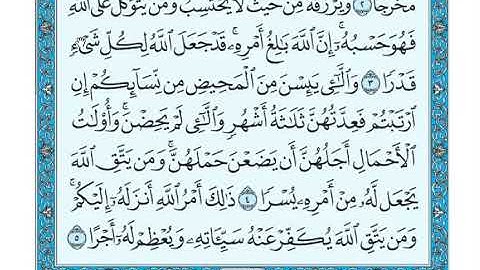 مَخْرَجًا ٢ وَيَرْزُقْهُ مِنْ حَيْثُ لَا يَحْتَسِبُ وَمَن يَتَوَكَّلْ عَلَى ٱللَّهِ
فَهُوَ حَسْبُهُۥٓ إِنَّ ٱللَّهَ بَٰلِغُ أَمْرِهِۦ قَدْ جَعَلَ ٱللَّهُ لِكُلِّ شَىْءٍ
قَدْرًا ٣ وَٱلَّٰٓـِٔى يَئِسْنَ مِنَ ٱلْمَحِيضِ مِن نِّسَآئِكُمْ إِنِ
ٱرْتَبْتُمْ فَعِدَّتُهُنَّ ثَلَٰثَةُ أَشْهُرٍ وَٱلَّٰٓـِٔى لَمْ يَحِضْنَ ۚ وَأُو۟لَٰتُ
ٱلْأَحْمَالِ أَجَلُهُنَّ أَن يَضَعْنَ حَمْلَهُنَّ ۚ وَمَن يَتَّقِ ٱللَّهَ
يَجْعَل لَّهُۥ مِنْ أَمْرِهِۦ يُسْرًا ٤ ذَٰلِكَ أَمْرُ ٱللَّهِ أَنزَلَهُۥٓ إِلَيْكُمْ ۚ
وَمَن يَتَّقِ ٱللَّهَ يُكَفِّرْ عَنْهُ سَيِّـَٔاتِهِۦ وَيُعْظِمْ لَهُۥٓ أَجْرًا ٥